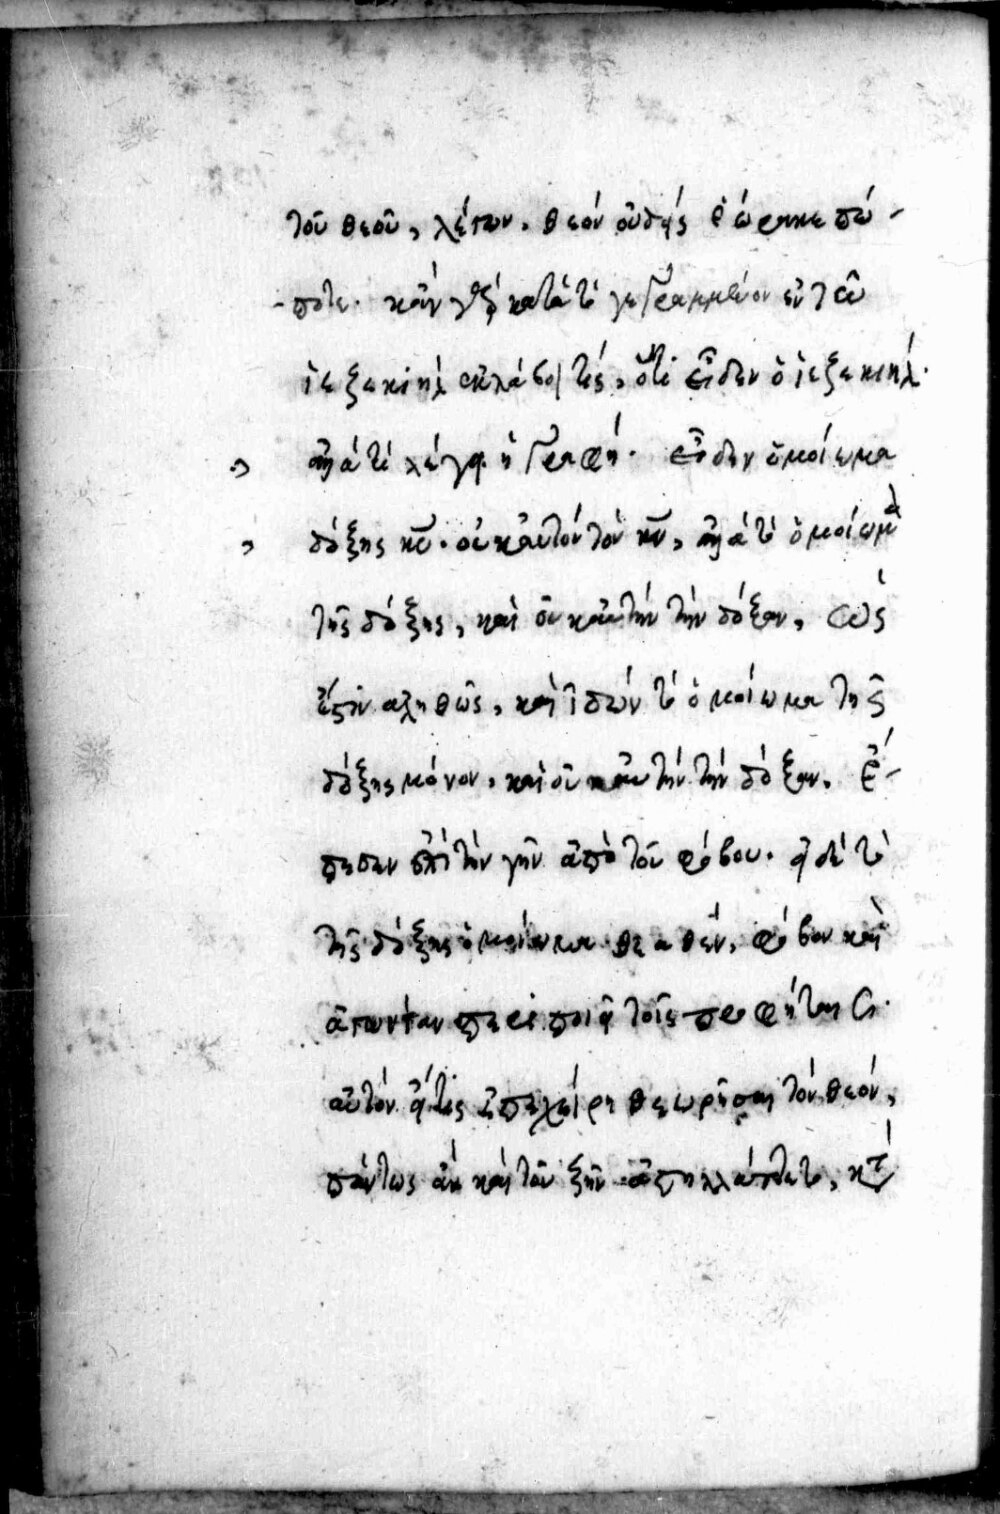 τοῦ θεοῦ, λέγων. θεὸν οὐδεὶς ἑώρακε πώ-
-ποτε. κἂν γὰρ κατὰ τὸ γεγραμμένον ἐν τῶ
ἰεζεκιὴλ ἐκλάβοι τίς, ὅτι εἶδεν ὁ ἰεζεκιήλ.
ἀλλὰ τί λέγει ἡ γραφή. εἶδεν ὁμοίωμα
δόξης κυ. οὐκ αὐτὸν τὸν κν, ἀλλὰ τὸ ὁμοίωμα
τῆς δόξης, καὶ οὐκ αὐτὴν τὴν δόξαν, ὡς
ἔστιν ἀληθῶς, καὶ ἰδὼν τὸ ὁμοίωμα τῆς
δόξης μόνον, καὶ οὐκ αὐτὴν τὴν δόξαν. ἔ-
πεσεν ἐπὶ τὴν γῆν ἀπὸ τοῦ φόβου. εἰ δὲ τὸ
τῆς δόξης ὁμοίωμα θεαθὲν, φόβον καὶ
περιποιεῖ τοῖς προφήταις.
αὐτὸν εἴ τις ἐπεχείρη θεωρῆσαι τὸν θεόν,
πάντως ἂν καὶ τοῦ ζῆν ἀπηλλάττετο, κτ